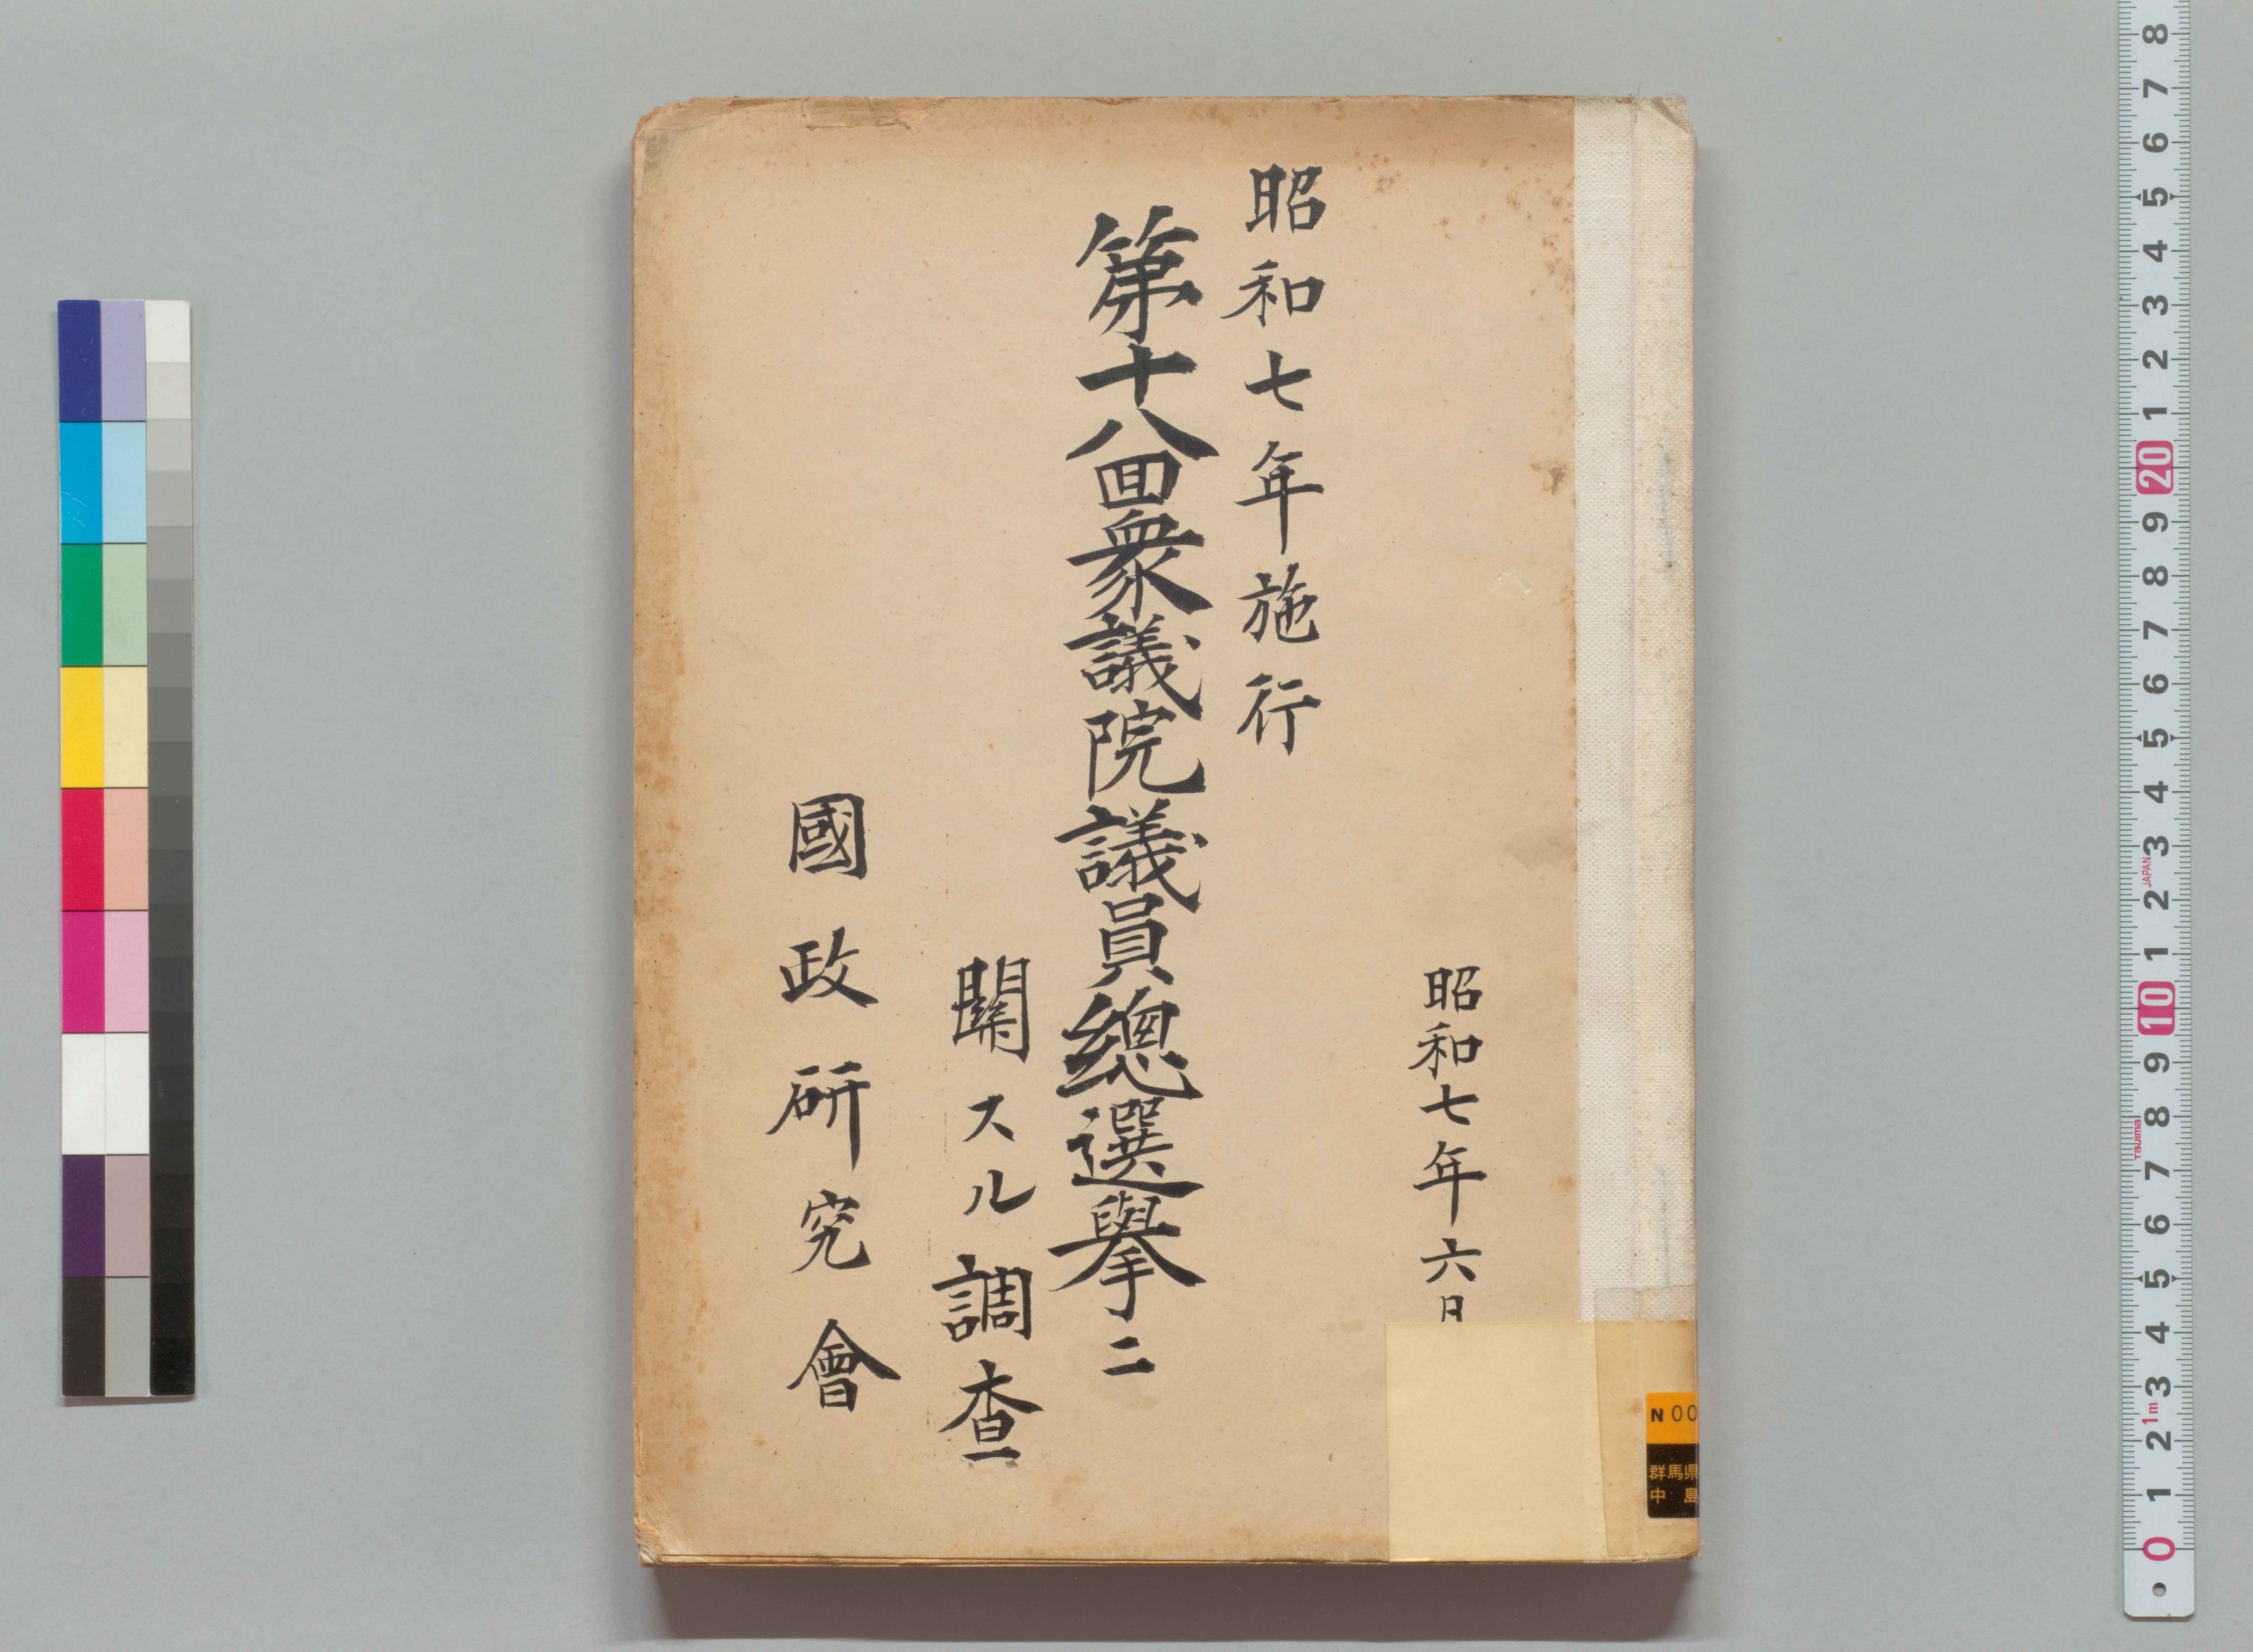 昭和七年六月
昭和七年施行
第十八回衆議院議員總選擧ニ
關スル調査
國政研究會
N 00
群馬県
中島
0 1 2 3 4 5 6 7 8 9 10 1 2 3 4 5 6 7 8 9 20 1 2 3 4 5 6 7 8
1m
Tajima
JAPAN